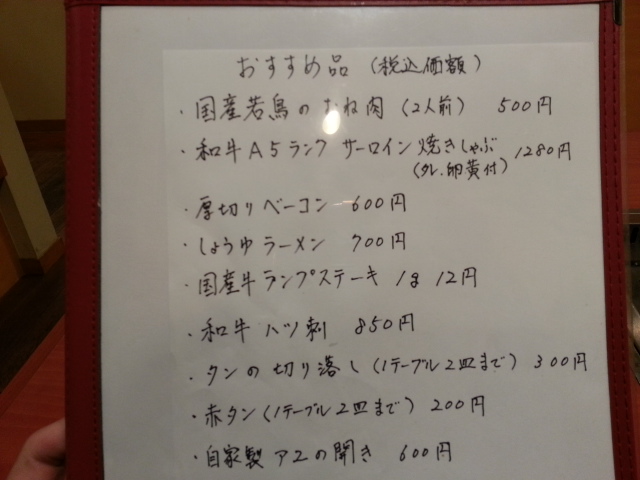 おすすめ品 (税込価額)
・国産若鳥のむね肉 (2人前) 500円
・和牛A5ランク サーロイン焼きしゃぶ 1280円
(タレ、卵黄付)
・厚切りベーコン 600円
・しょうゆラーメン 700円
・国産牛ランプステーキ 1g 12円
・和牛ハツ刺 850円
・タンの切り落し(1テーブル2皿まで) 300円
・赤タン(1テーブル2皿まで) 200円
・自家製アユの開き 600円